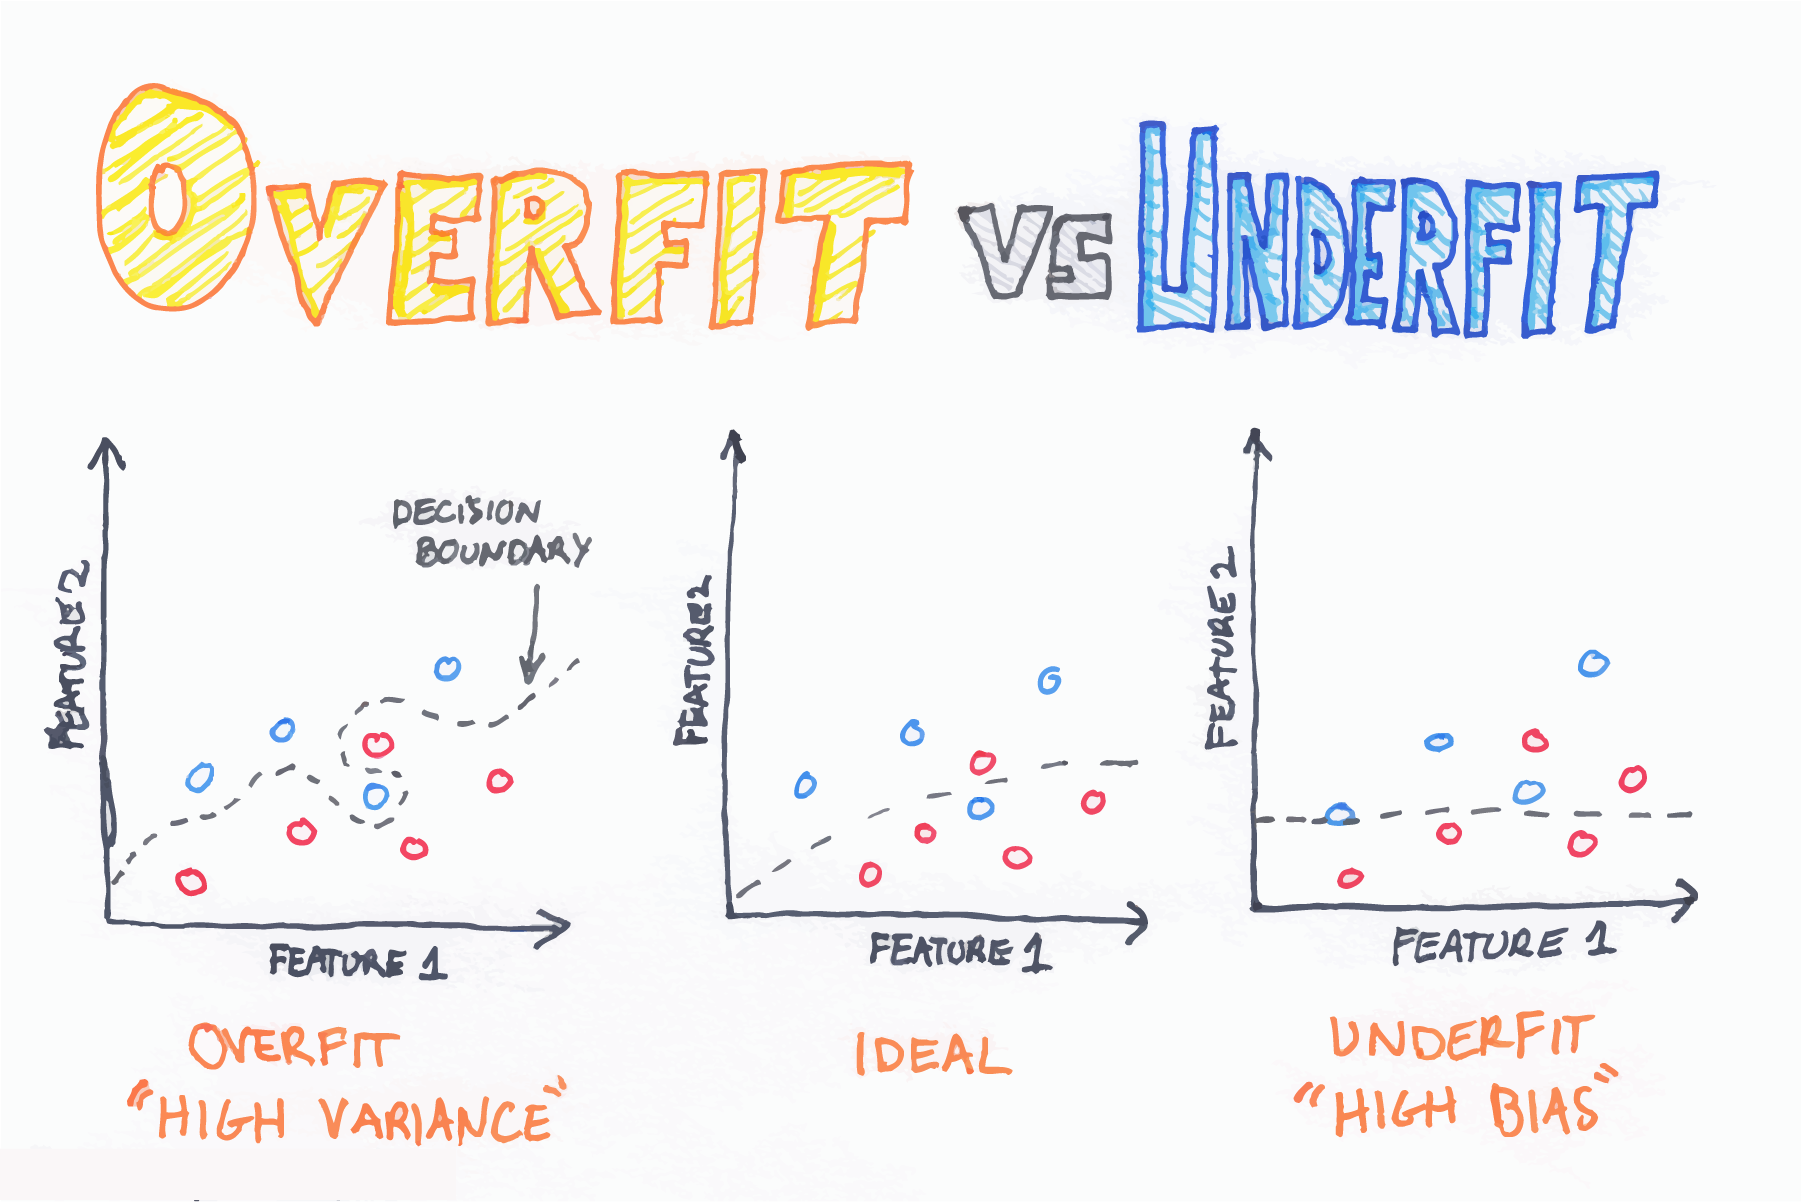 OVERFIT VS UNDERFIT
DECISION
BOUNDARY
FEATURE 2
FEATURE 1
OVERFIT
"HIGH VARIANCE"
FEATURE 2
FEATURE 1
IDEAL
FEATURE 2
FEATURE 1
UNDERFIT
"HIGH BIAS"